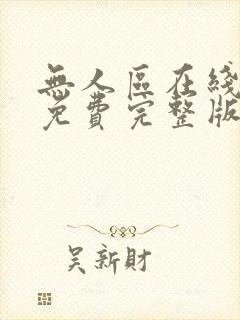 無人區在綫
免費完整版
吴新財